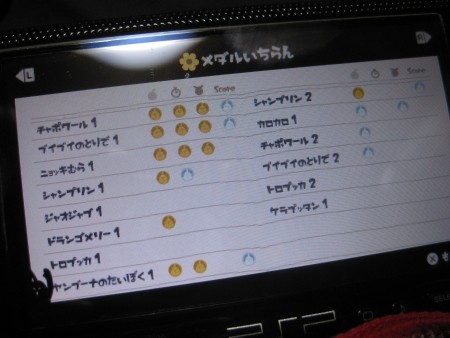 L
メダルいちらん
R
Score
チャポワール 1
ブイブイのとりで 1
ニョッキむら 1
シャンプリン 1
ジャオジャブ 1
ドランゴメリー 1
トロプッカ 1
ャンブーナのたいぼく 1
Score
シャンプリン 2
カロカロ 1
チャポワール 2
ブイブイのとりで 2
トロプッカ 2
ケラプッタン 1
PSP